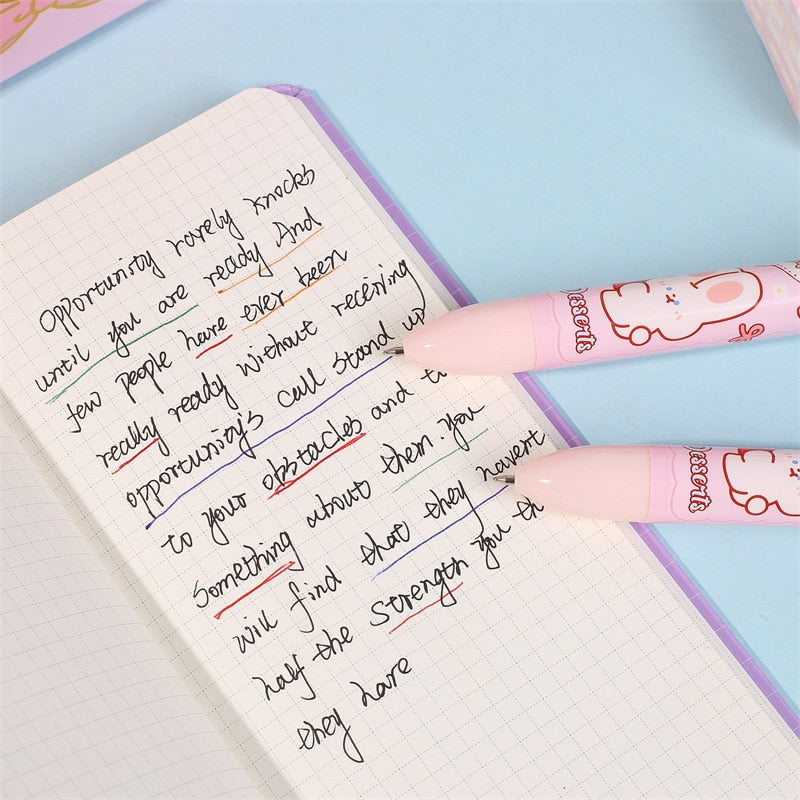 opportunity rarely knocks
until you are ready And
few people have ever been
really ready without receiving
opportunity's call Stand up
to your obstacles and
Something about them. you
will find that they havent
half the Strength you
they have
Desserts
Desserts